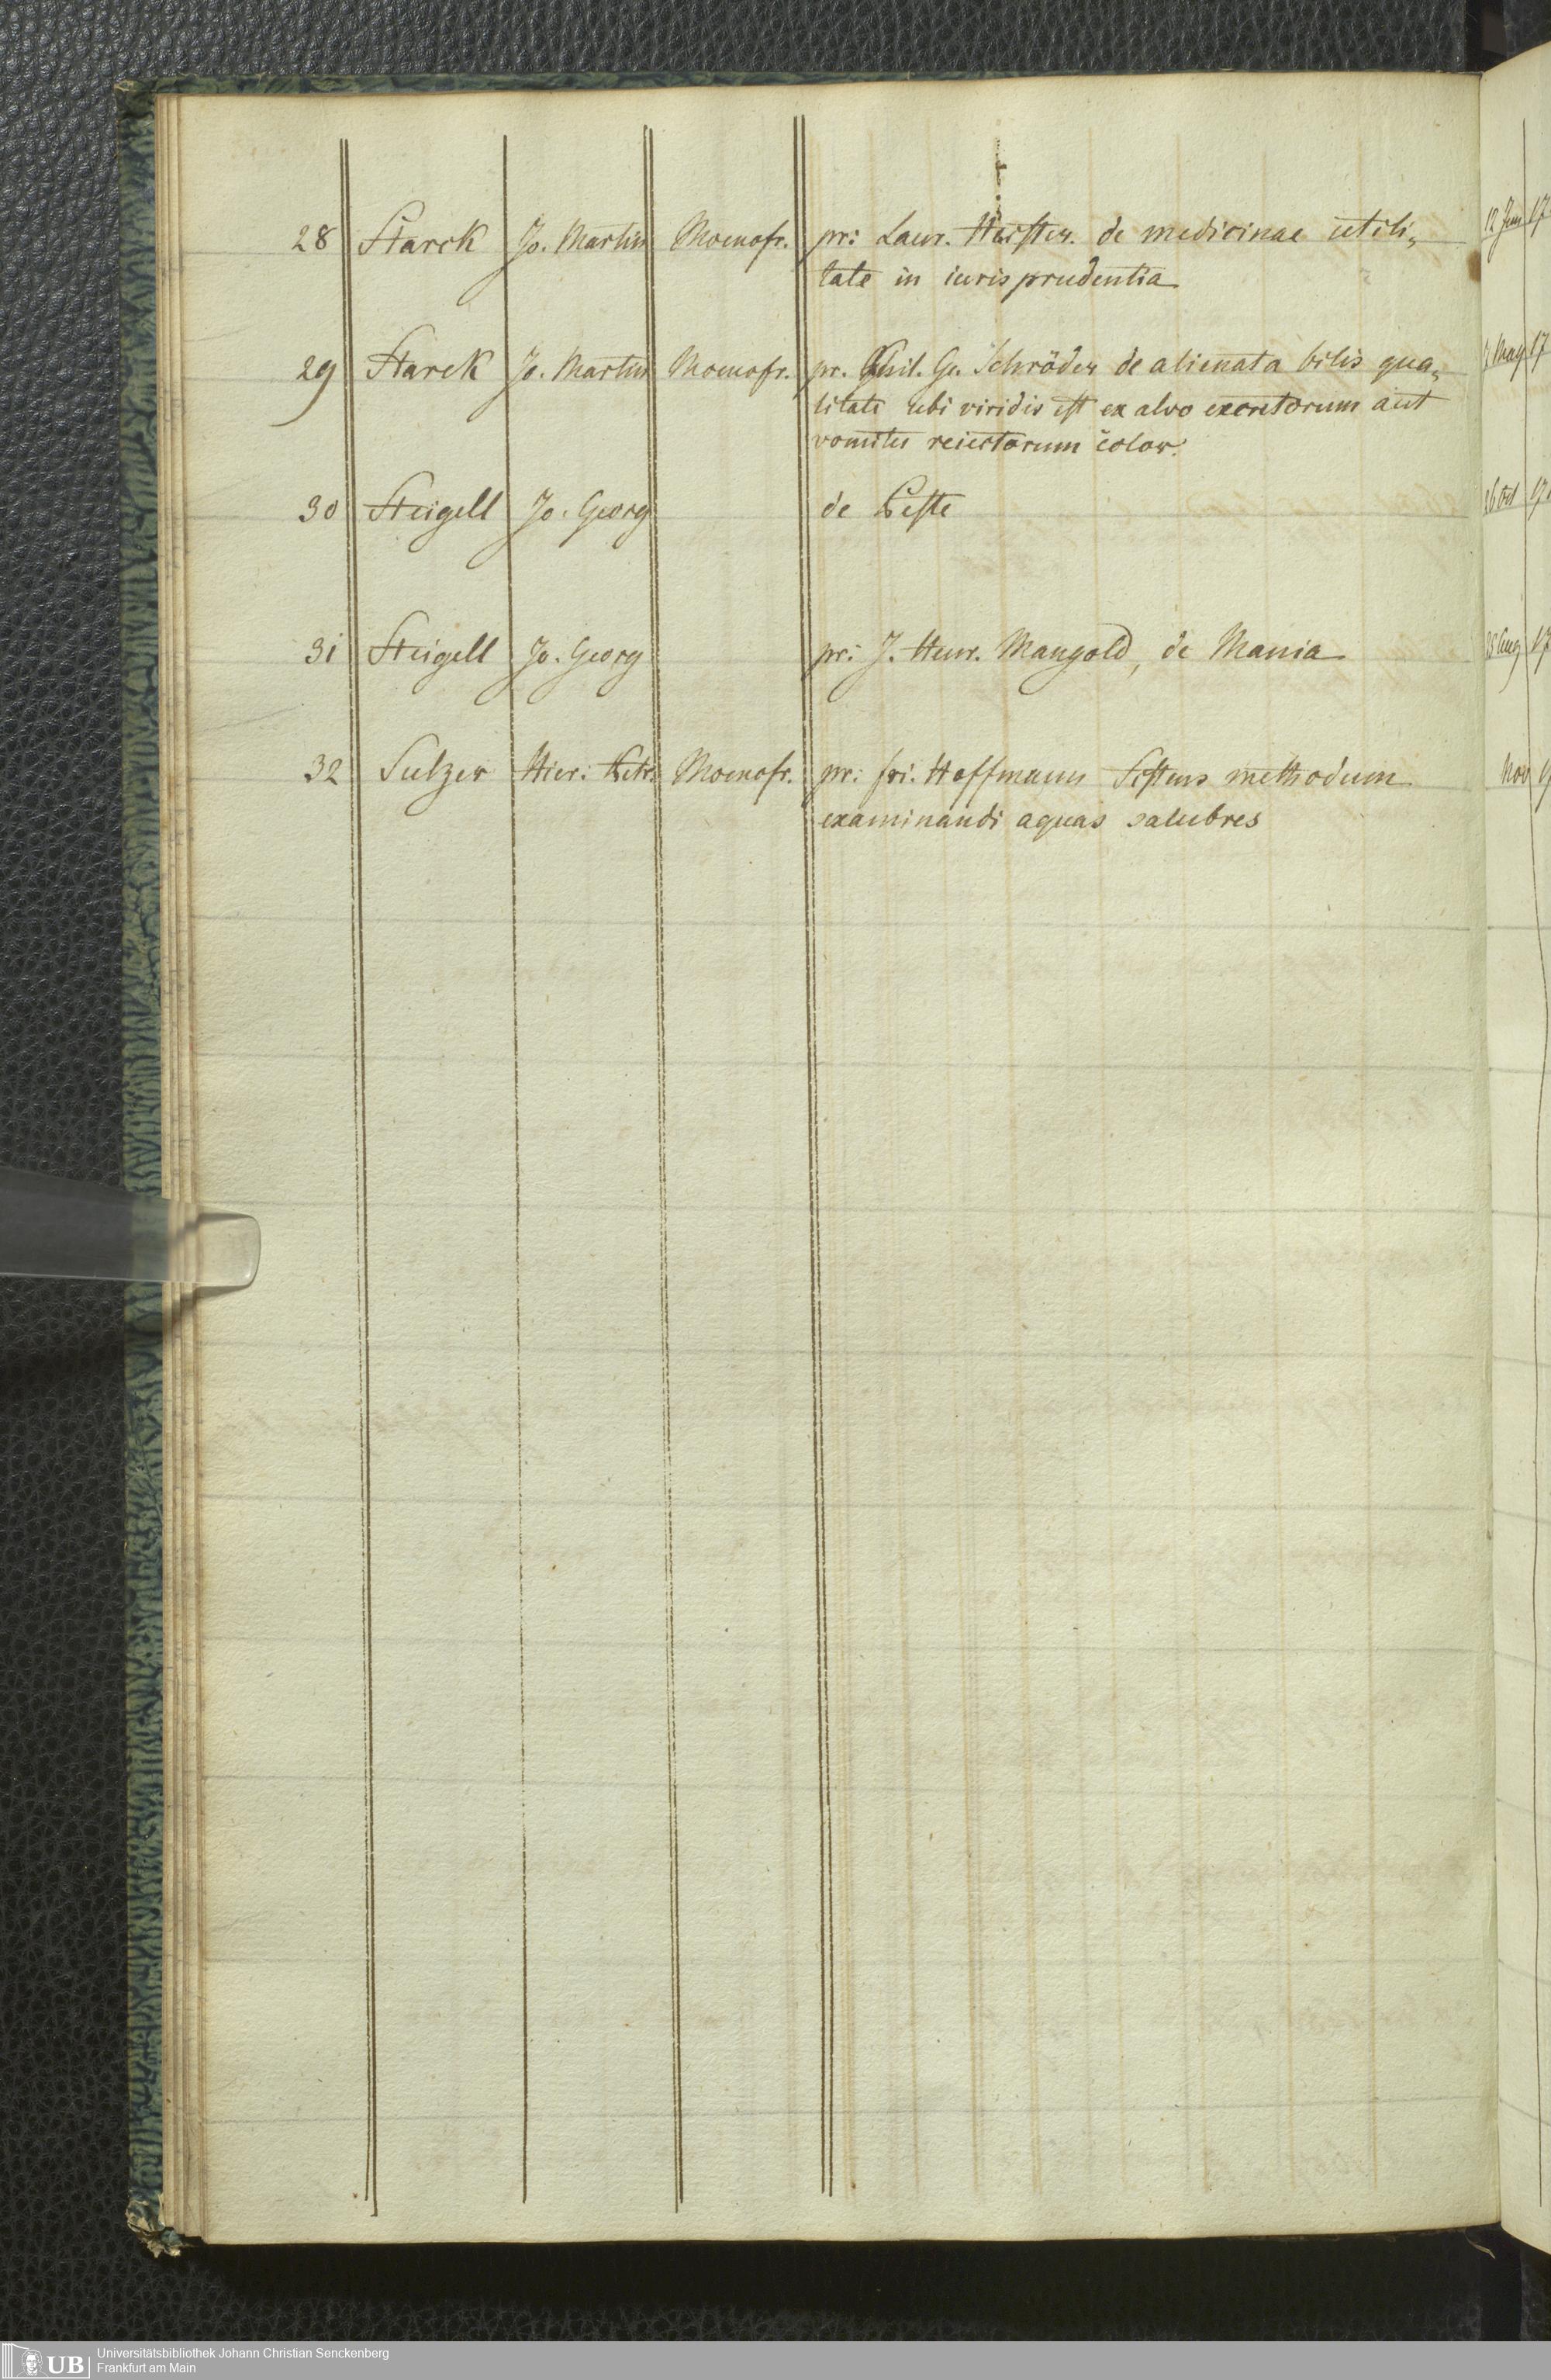 28 Starck Jo. Martin Moenofr. pr: Laur. Heister. de medicinae utili- 12 Jun 17
tate in iurisprudentia
29 Starck Jo. Martin Moenofr. pr. Phil. Ge. Schröder de alienata bilis qua- May 17
litate ubi viridis est ex alvo excretorum aut
vomitu reiectorum color.
30 Steigell Jo. Georg de Peste 17
31 Steigell Jo. Georg pr: J. Henr. Mangold, de Mania Aug 17
32 Sulzer Hier: Petr. Moenofr. pr: fri. Hoffmann Sistens methodum Nov
examinandi aquas salubres
UB Universitätsbibliothek Johann Christian Senckenberg
Frankfurt am Main